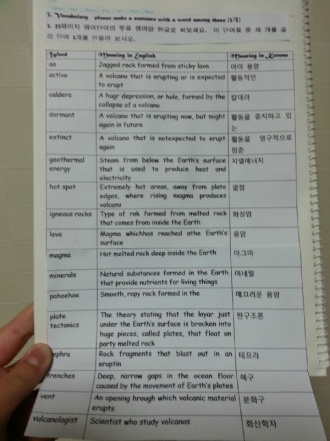 2. Vocabulary please make a sentence with a word among these (3개)
Word Meaning in English Meaning in Korean
aa Jagged rock formed from sticky lava 아아 용암
active A volcano that is erupting or is expected 활동적인
to erupt
caldera A huge depression, or hole, formed by the 칼데라
collapse of a volcano
dormant A volcano that is erupting now, but might 활동을 중지하고 있
again in future 는
extinct A volcano that is notexpected to erupt 활동을 영구적으로
again 멈춘
geothermal Steam from below the Earth's surface 지열에너지
energy that is used to produce heat and
electricity
hot spot Extremely hot areas, away from plate 열점
edges, where rising magma produces
volcano
igneous rocks Type of rok formed from melted rock 화성암
that comes from inside the Earth
lava Magma whichhes reached athe Earth's 용암
surface
magma Hot melted rock deep inside the Earth 마그마
minerals Natural substances formed in the Earth 미네랄
that provide nutrients for living things
pahoehoe Smooth, ropy rock formed in the 매끄러운 용암
plate The theory stating that the layar just 판구조론
tectonics under the Earth's surface is brocken into
huge pieces, called plates, that float on
party melted rock
ephra Rock fragments that blast out in an 테프라
eruptin
trenches Deep, narrow gaps in the ocean floor 해구
caused by the movement of Earth's plates
vent An opening hrough which volcanic material 분화구
erupts
vulcanologist Scientist who study volcanos 화산학자